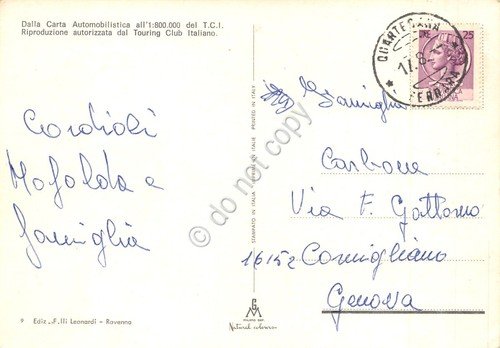 Dalla Carta Automobilistica all'1:800.000 del T.C.I.
Riproduzione autorizzata dal Touring Club Italiano.
Cordiali
Mafalda e
famiglia
9 Ediz. F.lli Leonardi - Ravenna
STAMPATO IN ITALIA PRINTED IN ITALY
GM
MILANO DEP.
Natural colours
QUARTESANA
FERRARA
17.8
25
Famiglia
Carbone
Via F. Gattorno
16152 Cornigliano
Genova
do not copy